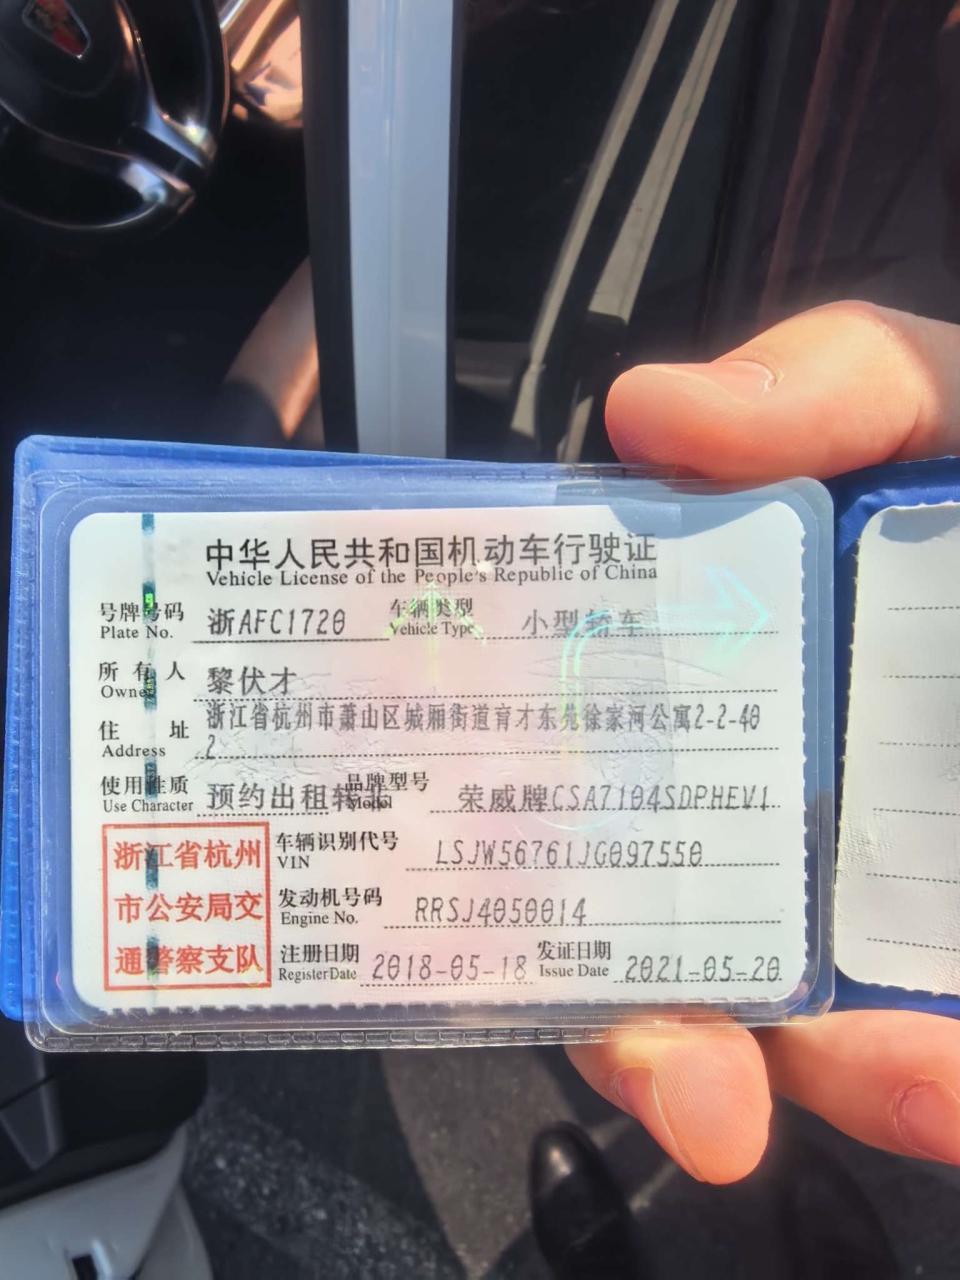 中华人民共和国机动车行驶证
Vehicle License of the People's Republic of China
号牌号码 浙AFC1720 车辆类型 小型轿车
Plate No. Vehicle Type
所有人 黎伏才
Owner
住址 浙江省杭州市萧山区城厢街道育才东苑徐家河公寓2-2-40
Address 2
使用性质 预约出租转非 品牌型号 荣威牌CSA7104SDPHEV1
Use Character Model
浙江省杭州
市公安局交
通警察支队
车辆识别代号 LSJW56761JG097550
VIN
发动机号码 RRSJ4050014
Engine No.
注册日期 2018-05-18 发证日期 2021-05-20
Register Date Issue Date